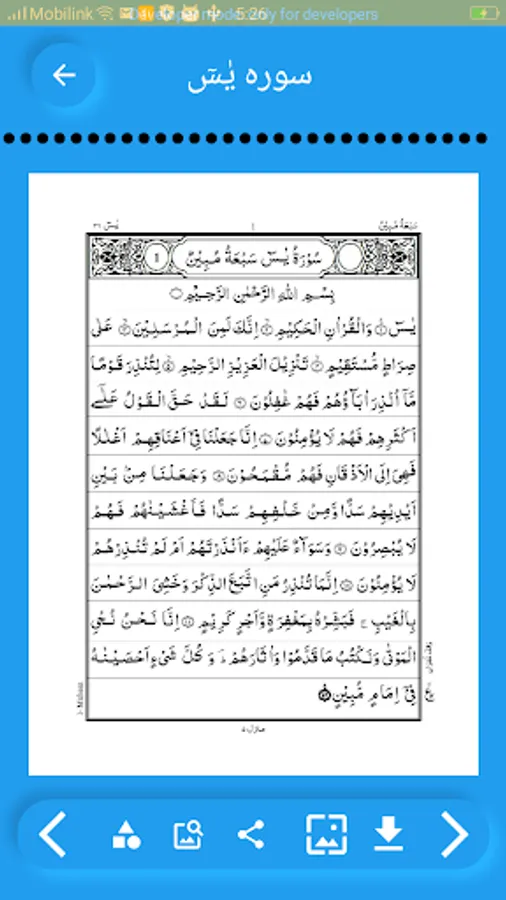 Mobilink Developer mode: only for developers 5:26
سورہ یٰسٓ
یٰسٓ ٣٦ ١ سَبْعَةُ مُبِیْنٌ
سُوْرَةُ یٰسٓ سَبْعَةُ مُبِیْنٌ ١
بِسْمِ اللهِ الرَّحْمٰنِ الرَّحِیْمِ
یٰسٓ ۝ وَالْقُرْاٰنِ الْحَكِیْمِ ۝ اِنَّكَ لَمِنَ الْمُرْسَلِیْنَ ۝ عَلٰی
صِرَاطٍ مُّسْتَقِیْمٍ ۝ تَنْزِیْلَ الْعَزِیْزِ الرَّحِیْمِ ۝ لِتُنْذِرَ قَوْمًا
مَّاۤ اُنْذِرَ اٰبَآؤُهُمْ فَهُمْ غٰفِلُوْنَ ۝ لَقَدْ حَقَّ الْقَوْلُ عَلٰۤی
اَكْثَرِهِمْ فَهُمْ لَا یُؤْمِنُوْنَ ۝ اِنَّا جَعَلْنَا فِیْۤ اَعْنَاقِهِمْ اَغْلٰلًا
فَهِیَ اِلَی الْاَذْقَانِ فَهُمْ مُّقْمَحُوْنَ ۝ وَجَعَلْنَا مِنْۢ بَیْنِ
اَیْدِیْهِمْ سَدًّا وَّمِنْ خَلْفِهِمْ سَدًّا فَاَغْشَیْنٰهُمْ فَهُمْ
لَا یُبْصِرُوْنَ ۝ وَسَوَآءٌ عَلَیْهِمْ ءَاَنْذَرْتَهُمْ اَمْ لَمْ تُنْذِرْهُمْ
لَا یُؤْمِنُوْنَ ۝ اِنَّمَا تُنْذِرُ مَنِ اتَّبَعَ الذِّكْرَ وَخَشِیَ الرَّحْمٰنَ
بِالْغَیْبِ ۚ فَبَشِّرْهُ بِمَغْفِرَةٍ وَّاَجْرٍ كَرِیْمٍ ۝ اِنَّا نَحْنُ نُحْیِ
الْمَوْتٰی وَنَكْتُبُ مَا قَدَّمُوْا وَاٰثَارَهُمْ ؕ وَكُلَّ شَیْءٍ اَحْصَیْنٰهُ
فِیْۤ اِمَامٍ مُّبِیْنٍ ۝